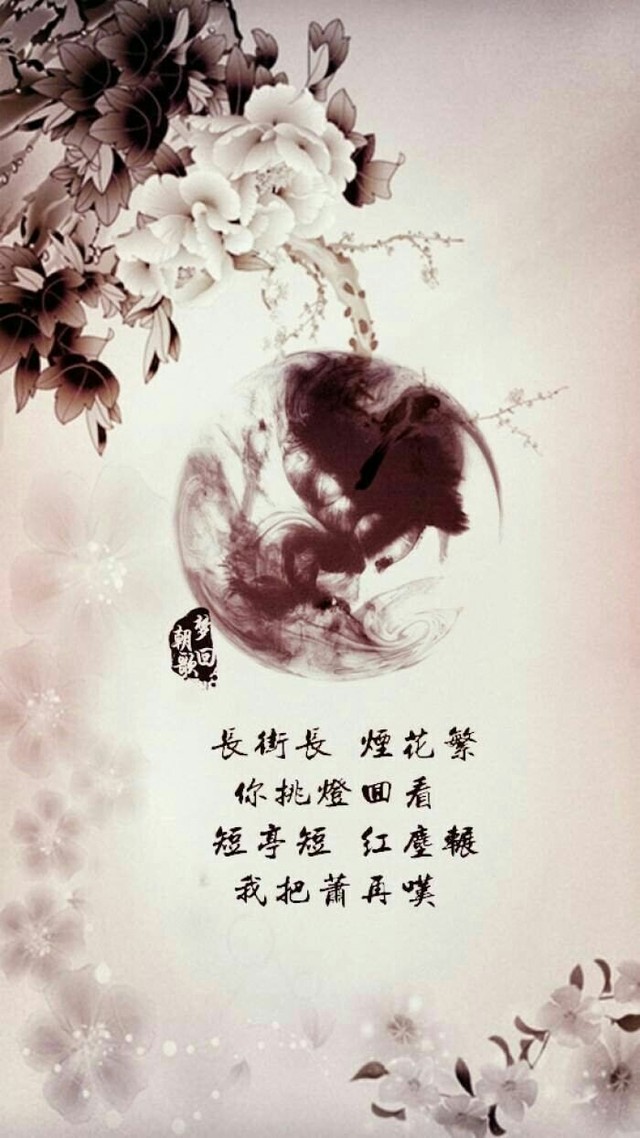 梦回
朝歌
長街長 煙花繁
你挑燈回看
短亭短 红塵輾
我把蕭再嘆